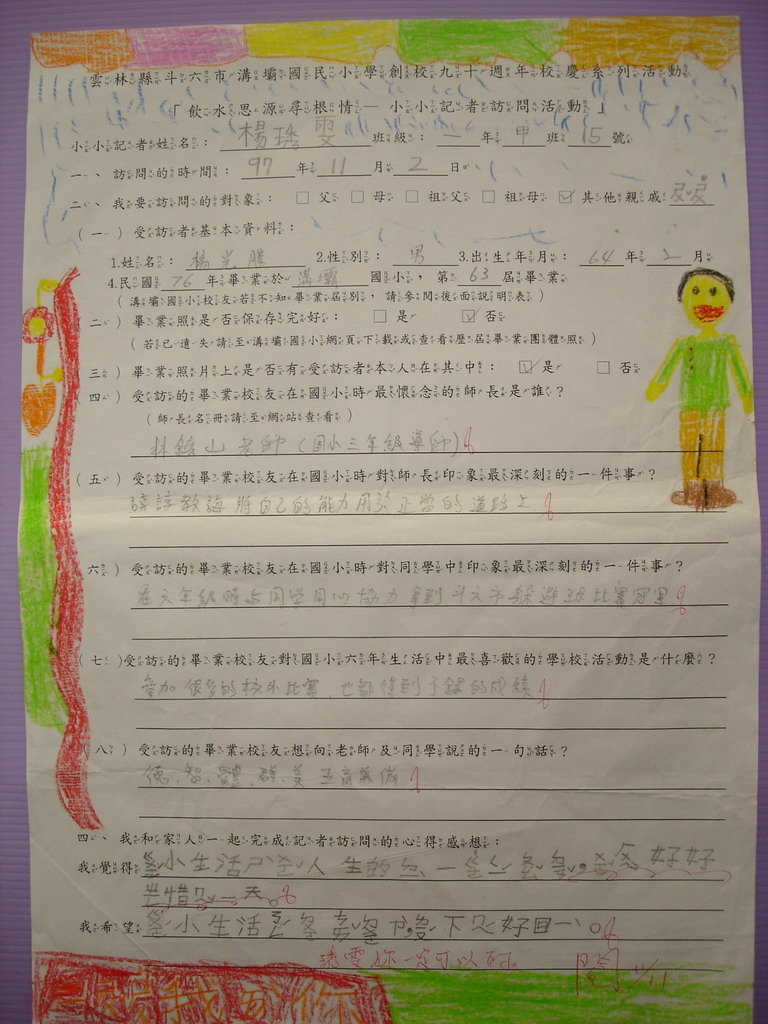 雲林縣斗六市溝壩國民小學創校九十週年校慶系列活動
「飲水思源尋根情— 小小記者訪問活動」
小小記者姓名： 楊琇雯 班級： 一 年 甲 班 15 號
一、訪問的時間： 97 年 11 月 2 日
二、我要訪問的對象： □父 □母 □祖父 □祖母 ☑其他親戚 叔叔
（一）受訪者基本資料：
1.姓名： 楊 2.性別： 男 3.出生年月： 64 年 2 月
4.民國 76 年畢業於 溝壩 國小，第 63 屆畢業
（溝壩國小校友若不知畢業屆別，請參閱後面說明表）
二）畢業照是否保存完好： □是 ☑否
（若已遺失請至溝壩國小網頁下載或查看歷屆畢業團體照）
（三）畢業照片上是否有受訪者本人在其中： ☑是 □否
（四）受訪的畢業校友在國小時最懷念的師長是誰？
（師長名冊請至網站查看）
林 山老師（國小三年級導師）
（五）受訪的畢業校友在國小時對師長印象最深刻的一件事？
諄諄教誨將自己的能力用於正當的道路上
六）受訪的畢業校友在國小時對同學中印象最深刻的一件事？
在六年級時與同學同心協力拿到斗六市躲避球比賽冠軍
（七）受訪的畢業校友對國小六年生活中最喜歡的學校活動是什麼？
參加很多的校外比賽，也都得到了錯的成績
（八）受訪的畢業校友想向老師及同學說的一句話？
德、智、體、群、美五育兼備
四、我和家人一起完成記者訪問的心得感想：
我覺得 小生活ㄕˋ人生的 一 好好
惜 一天。
我希望 小生活 下 好回一。
琇雯妳一定可以的
閱 11/11